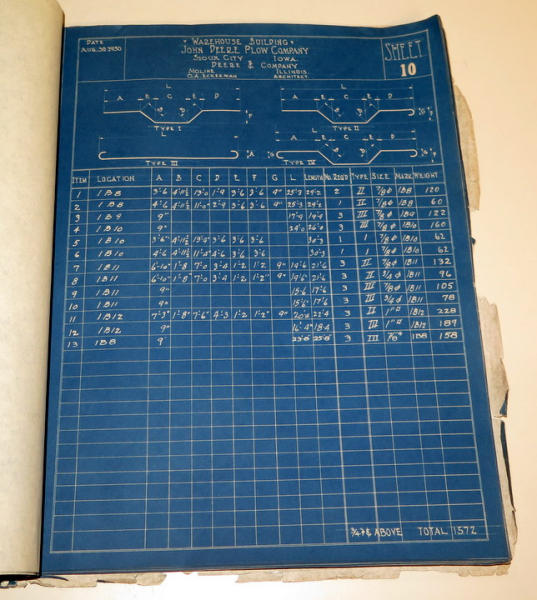 DATE
AUG. 30 1930
• WAREHOUSE BUILDING •
JOHN DEERE PLOW COMPANY
SIOUX CITY IOWA
DEERE & COMPANY
MOLINE ILLINOIS
O.A. ECKERMAN ARCHITECT
SHEET
10
L
A E C E D
TYPE I
L
A E C E D
TYPE II
L
TYPE III
L
TYPE IV
ITEM LOCATION A B C D E F G L LENGTH NO. REQ'D TYPE SIZE MARK WEIGHT
1 1B8 2 II 7/8 φ 1B8 120
2 1B8 1 II 7/8 φ 1B8 60
3 1B9 9" 17'-9 19'-9 3 III 7/8 φ 1B9 122
4 1B10 9" 24'-0 26'-0 3 III 7/8 φ 1B10 160
5 1B10 30'-3 1 I 7/8 φ 1B10 62
6 1B10 30'-3 1 I 7/8 φ 1B10 62
7 1B11 6'-10" 1'-8 7'-0 3'-4 1'-2 1'-2 9" 19'-6 21'-6 3 II 7/8 φ 1B11 132
8 1B11 6'-10" 1'-8 7'-0 3'-4 1'-2 1'-2" 9" 19'-6 21'-6 3 II 3/4 φ 1B11 96
9 1B11 9" 15'-6 17'-6 3 III 7/8 φ 1B11 105
10 1B11 9" 15'-6 17'-6 3 III 3/4 φ 1B11 78
11 1B12 7'-3" 1'-8" 7'-6" 4'-3 1'-2 1'-2" 9" 20'-4 22'-4 3 II 1" 1B12 228
12 1B12 9" 16'-4" 18'-4 3 III 1" 1B12 189
13 1B8 9" 23'-8" 25'-8" 3 III 7/8 1B8 158
ABOVE TOTAL 1572